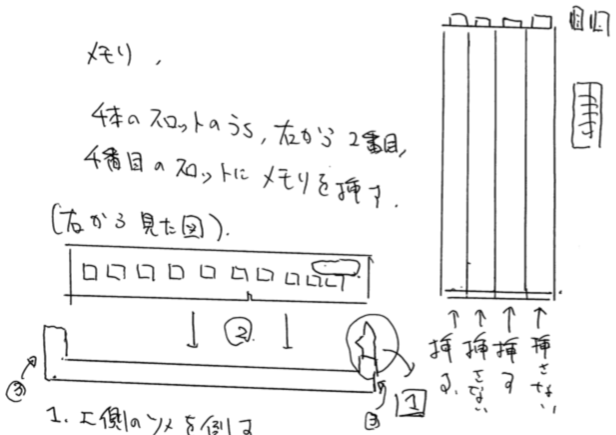 メモリ.
4本のスロットのうち,右から2番目,
4番目のスロットにメモリを挿す.
(右から見た図).
②
③
③
1
1. 上側のツメを倒す
挿す
挿さない
挿す
挿さない